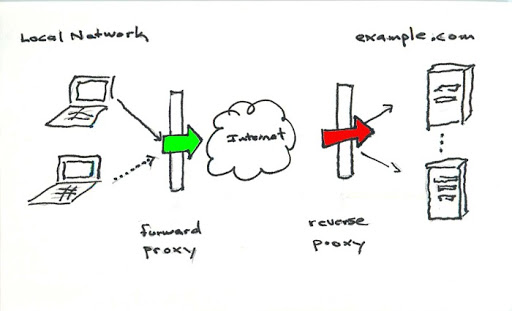 Local Network
example.com
Internet
forward
proxy
reverse
proxy